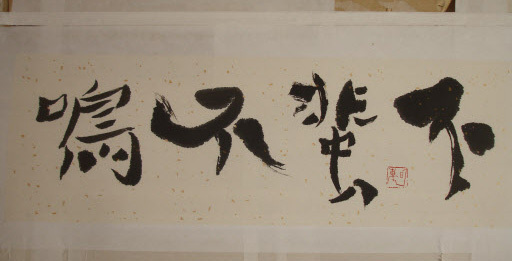 不蜚不鳴